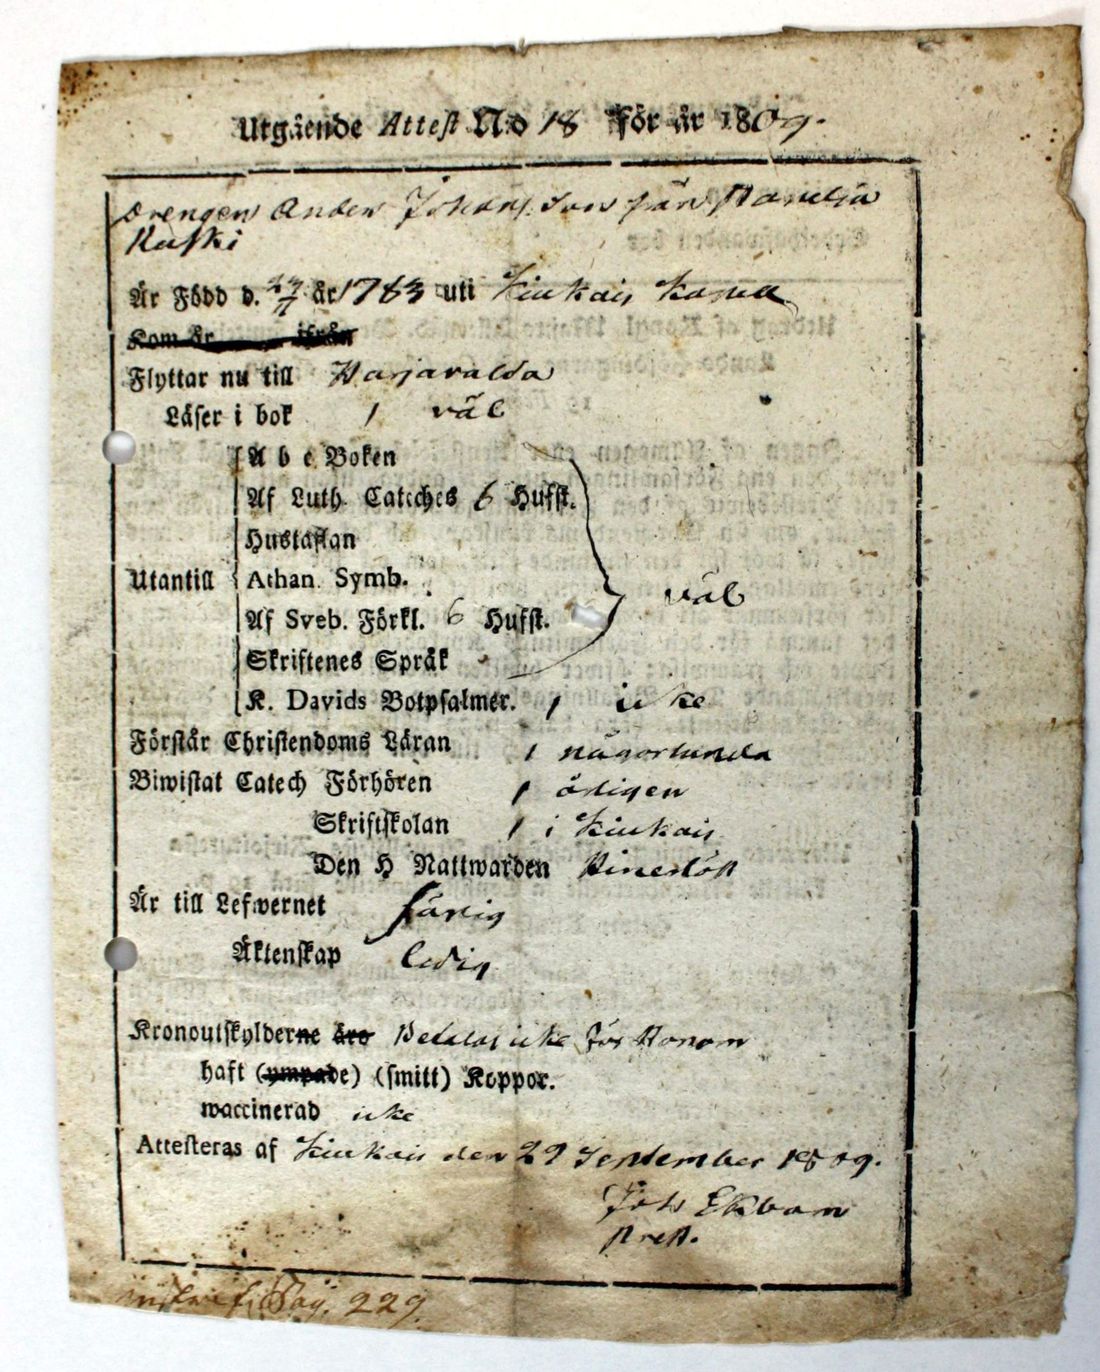 Utgående Attest N:o 18 För år 1809.
Drengen Anders Johansson från Panelia
Kuski
Är Född d. år 1783 uti Kiukais Kapell
Kom år ifrån
Flyttar nu till Harjavalda
Läser i bok / väl
A b c Boken
Af Luth. Cateches 6 Hufst.
Hustaflan
Utantill Athan. Symb. väl
Af Sveb. Förkl. 6 Hufst.
Skriftenes Språk
K. Davids Botpsalmer. / icke
Förstår Christendoms Läran / någorlunda
Biwistat Catech Förhören / årligen
Skriftskolan / i Kiukais
Den H Nattwarden
Är till Lefwernet
Äktenskap ledig
Kronoutskylderne äro Betalas icke för Honom
haft (ympade) (smitt) Koppor.
waccinerad icke
Attesteras af Kiukais den 29 September 1809.
Joh Ekbom
Prest.
Pag. 229.